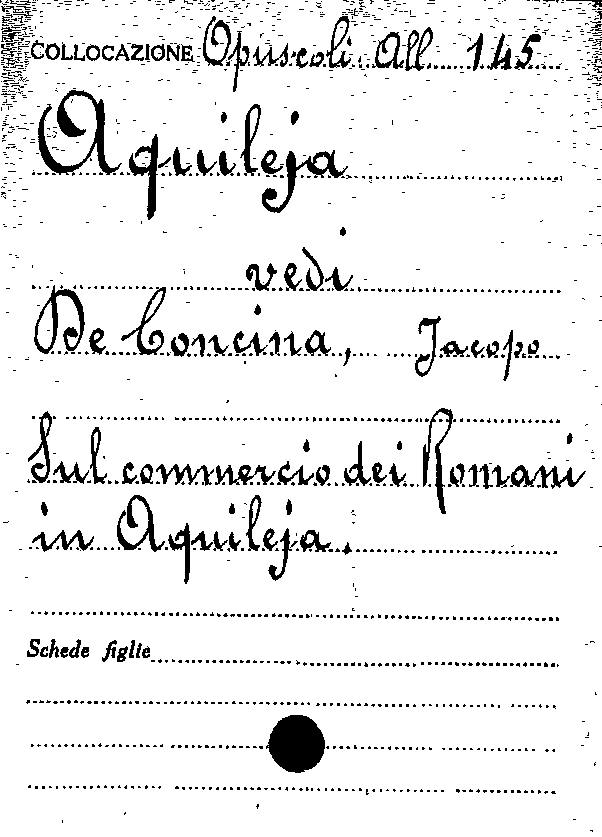 COLLOCAZIONE Opuscoli All. 145
Aquileja
vedi
De Concina, Jacopo
Sul commercio dei Romani
in Aquileja.
Schede figlie